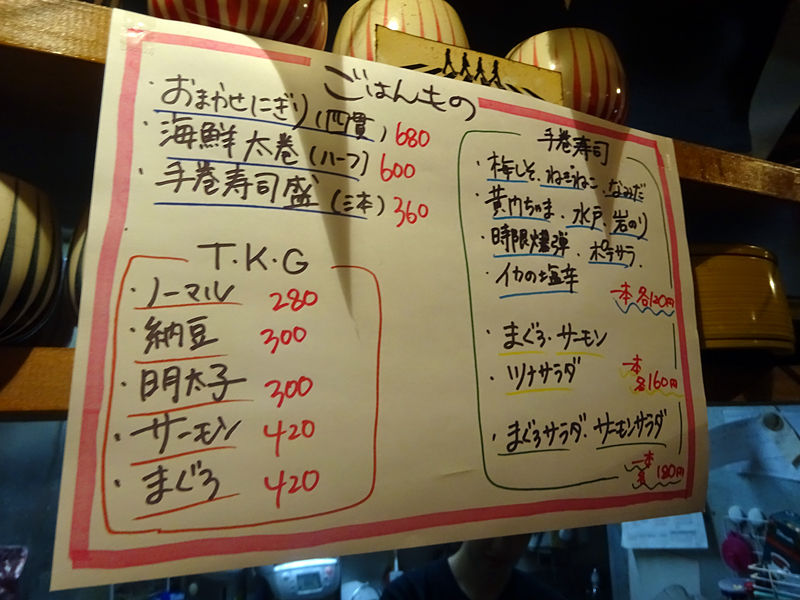 ごはんもの
・おまかせにぎり(四貫) 680
・海鮮太巻(ハーフ) 600
・手巻寿司盛(三本) 360
T.K.G
・ノーマル 280
・納豆 300
・明太子 300
・サーモン 420
・まぐろ 420
手巻寿司
・梅しそ・ねぎねこ・なみだ
・黄門ちゃま・水戸・岩のり
・時限爆弾・ポテサラ・
・イカの塩辛
一本各120円
・まぐろ・サーモン
・ツナサラダ
一本
各160円
・まぐろサラダ・サーモンサラダ
一本
各180円